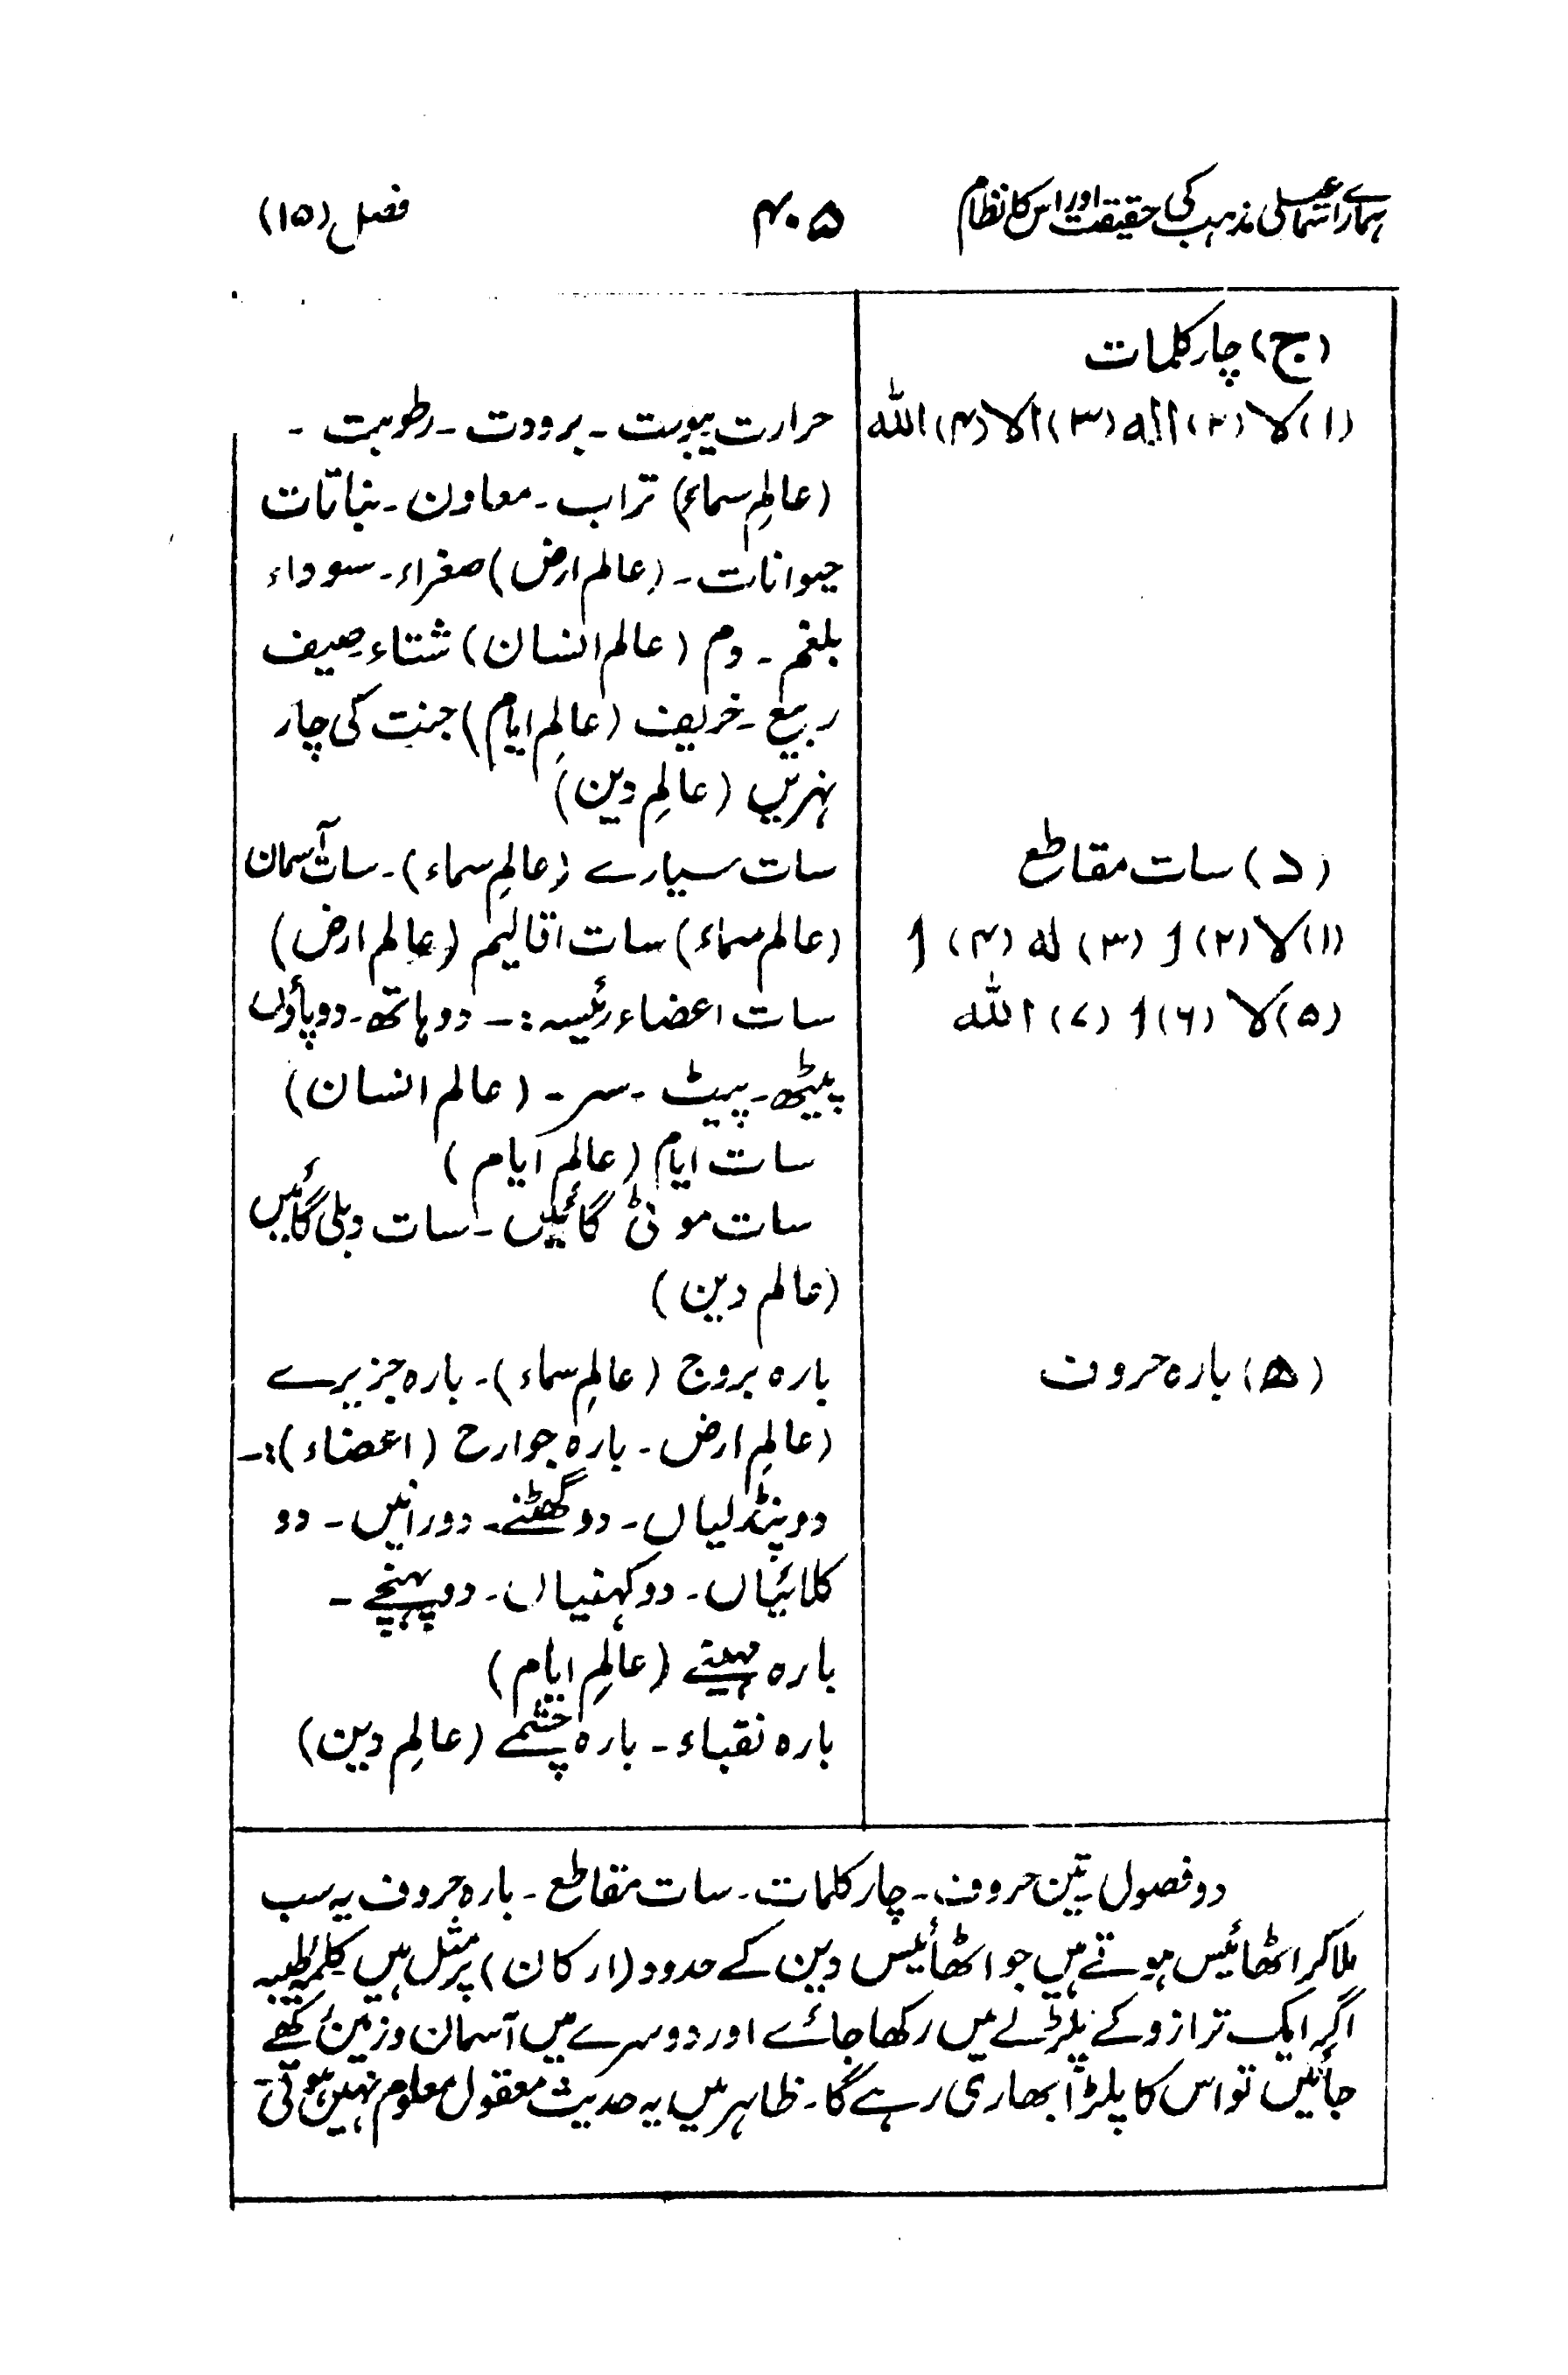 ہمارے اسمٰعیلی مذہب کی حقیقت اور اس کا نظام
۴۰۵
فصل (۱۵)
(ج) چار کلمات
(۱) لا (۲) الٰه (۳) الا (۴) اللّٰه
حرارت یبوست ۔ برودت ۔ رطوبت ۔
(عالمِ سماء) تراب ۔ معاون ۔ نباتات
حیوانات ۔ (عالم ارض) صفراء ۔ سوداء
بلغم ۔ دم (عالم انسان) شتاء صیف
ربیع ۔ خریف (عالمِ ایام) جنت کی چار
نہریں (عالمِ دین)
(د) سات مقاطع
(۱) لا (۲) ا (۳) لہ (۴) ا
(۵) لا (۶) ا (۷) اللہ
سات سیارے (عالمِ سماء) ۔ سات آسمان
(عالم سماء) سات اقالیم (عالم ارض)
سات اعضاء رئیسہ :۔ دو ہاتھ ۔ دو پاؤں
پیٹھ ۔ پیٹ ۔ سر ۔ (عالم انسان)
سات ایام (عالم ایام)
سات موٹی گائیں ۔ سات دبلی گائیں
(عالم دین)
(ھ) بارہ حروف
بارہ بروج (عالمِ سماء) ۔ بارہ جزیرے
(عالمِ ارض ۔ بارہ جوارح (اعضاء) :۔
دو پنڈلیاں ۔ دو گھٹنے ۔ دو رانیں ۔ دو
کلائیاں ۔ دو کہنیاں ۔ دو پہنچے ۔
بارہ مہینے (عالمِ ایام)
بارہ نقباء ۔ بارہ چشمے (عالمِ دین)
دو فصول ۔ تین حروف ۔ چار کلمات ۔ سات مقاطع ۔ بارہ حروف یہ سب
ملا کر اٹھائیس ہوتے ہیں جو اٹھائیس دین کے حدود (ارکان) پر مثل ہیں کلمہ طیبہ
اگر ایک ترازو کے پلڑے میں رکھا جائے اور دوسرے میں آسمان و زمین رکھے
جائیں تو اس کا پلڑا بھاری رہے گا ۔ ظاہر میں یہ حدیث معقول معلوم نہیں ہوتی